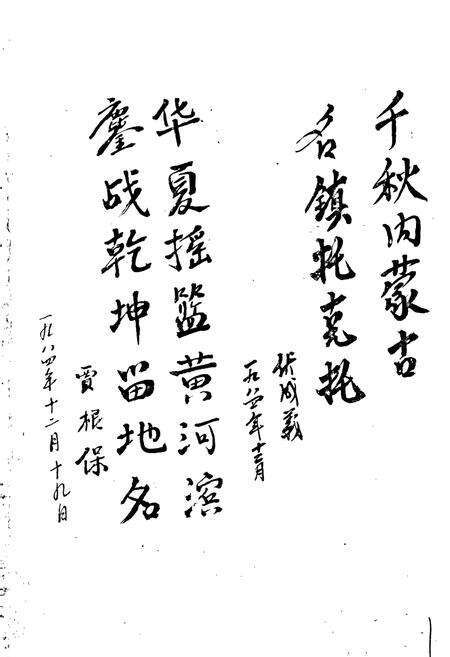 千秋内蒙古
名鎮托克托
成義
一九八四年十二月
华夏摇篮黄河滨
鏖战乾坤留地名
贾根保
一九八四年十二月十九日